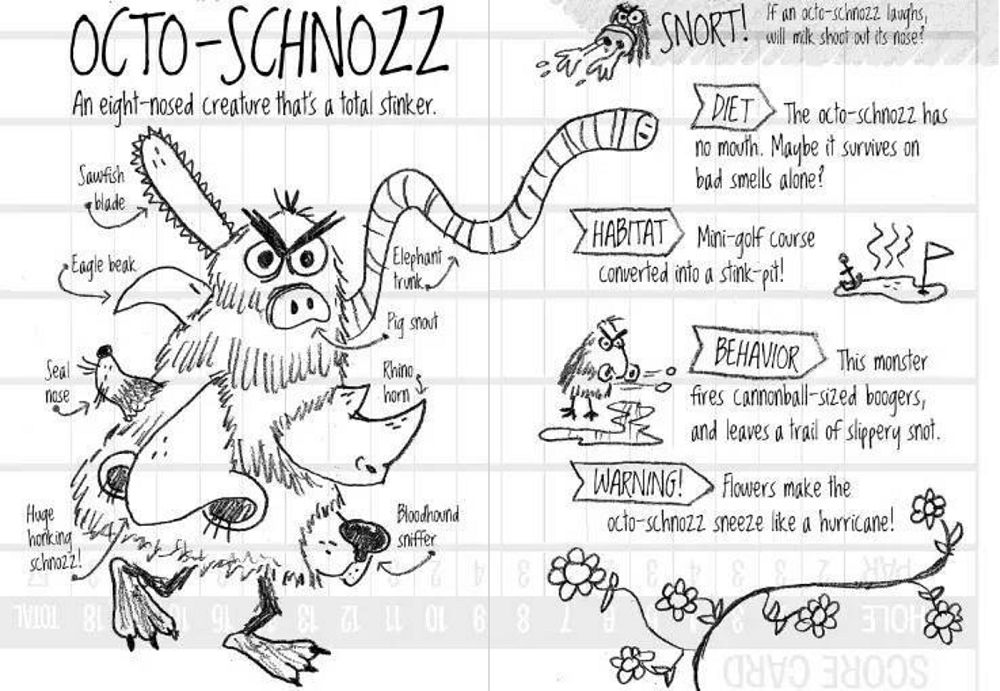 OCTO-SCHNOZZ
An eight-nosed creature that's a total stinker.
Sawfish
blade
Eagle beak
Seal
nose
Huge
honking
schnozz!
Elephant
trunk
Pig snout
Rhino
horn
Bloodhound
sniffer
SNORT!
If an octo-schnozz laughs,
will milk shoot out its nose?
DIET The octo-schnozz has
no mouth. Maybe it survives on
bad smells alone?
HABITAT Mini-golf course
converted into a stink-pit!
BEHAVIOR This monster
fires cannonball-sized boogers,
and leaves a trail of slippery snot.
WARNING! Flowers make the
octo-schnozz sneeze like a hurricane!
SCORE CARD
HOLE 7 8 9 10 11 12 13 15 16 18 TOTAL
PAR